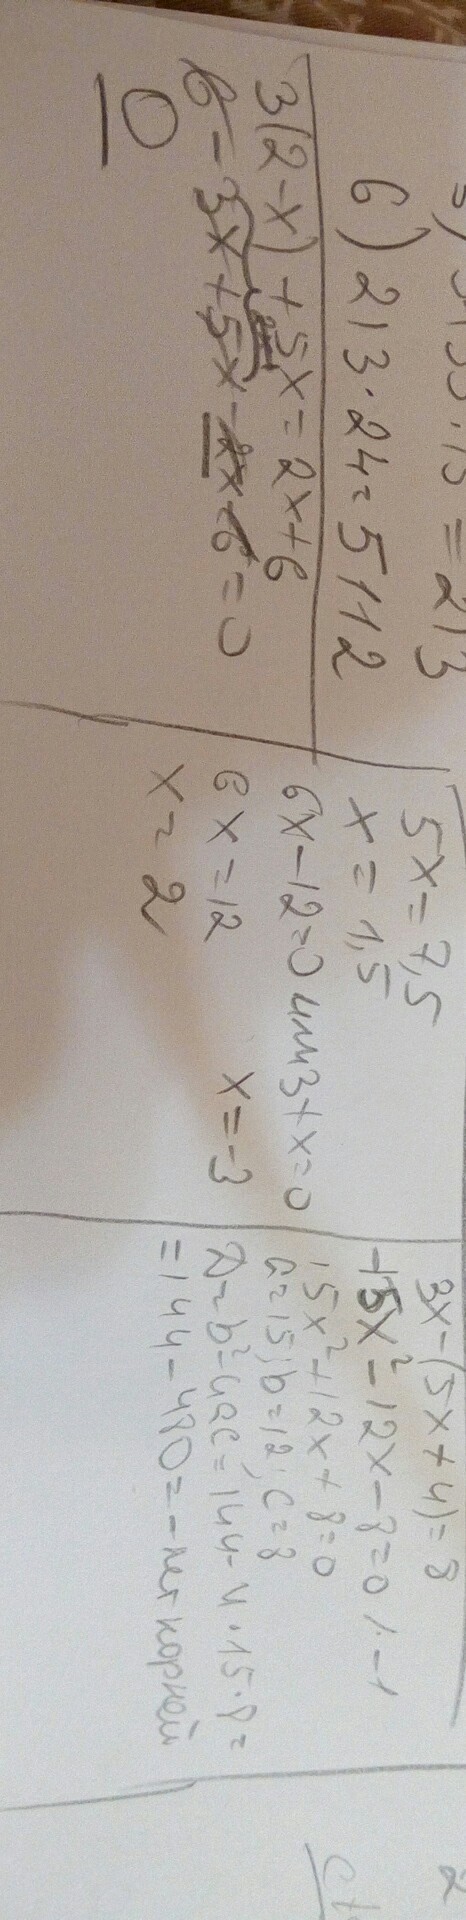 5x = 7,5
x = 1,5
6) 213 · 24 = 5112
3(2-x) + 5x = 2x+6
6 - 3x + 5x - 2x - 6 = 0
0
6x - 12 = 0 или 3 + x = 0
6x = 12
x = -3
x = 2
3x - (5x + 4) = 8
-15x² - 12x - 8 = 0 / · -1
15x² + 12x + 8 = 0
a = 15; b = 12; c = 8
D = b² - 4ac = 144 - 4 · 15 · 8 =
= 144 - 480 = - нет корней